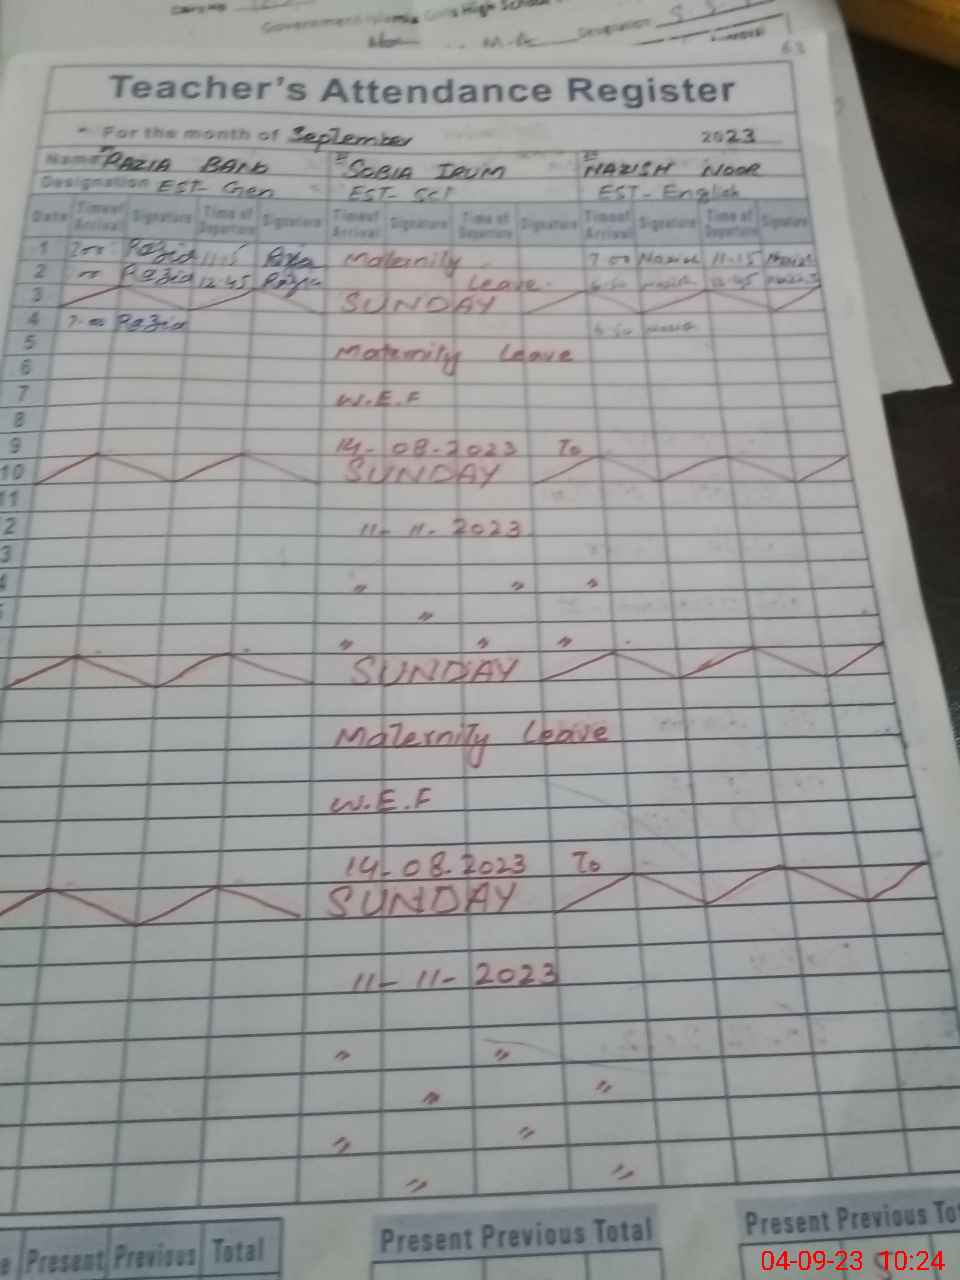 Government Islamia Girls High School
Designation
Teacher's Attendance Register
For the month of September 2023
Name RAZIA BANO SOBIA IRUM NAZISH NOOR
Designation EST- Gen EST- Sci EST- English
Date Time of Arrival Signature Time of Departure Signature Time of Arrival Signature Time of Departure Signature Time of Arrival Signature Time of Departure Signature
1 7:00 Razia 11:15 Razia Maternity 7:00 Nazish 11:15 Nazish
2 Razia 12:45 Razia Leave. 6:50 Nazish 12:45 Nazish
3 SUNDAY
4 7:00 Razia 6:50 Nazish
5 Maternity Leave
6
7 W.E.F
8
9 14-08-2023 To
10 SUNDAY
11
2 11-11-2023
3
4 " " "
"
" " "
SUNDAY
Maternity Leave
W.E.F
14-08-2023 To
SUNDAY
11-11-2023
" "
" "
" "
" "
e Present Previous Total Present Previous Total Present Previous To
04-09-23 10:24